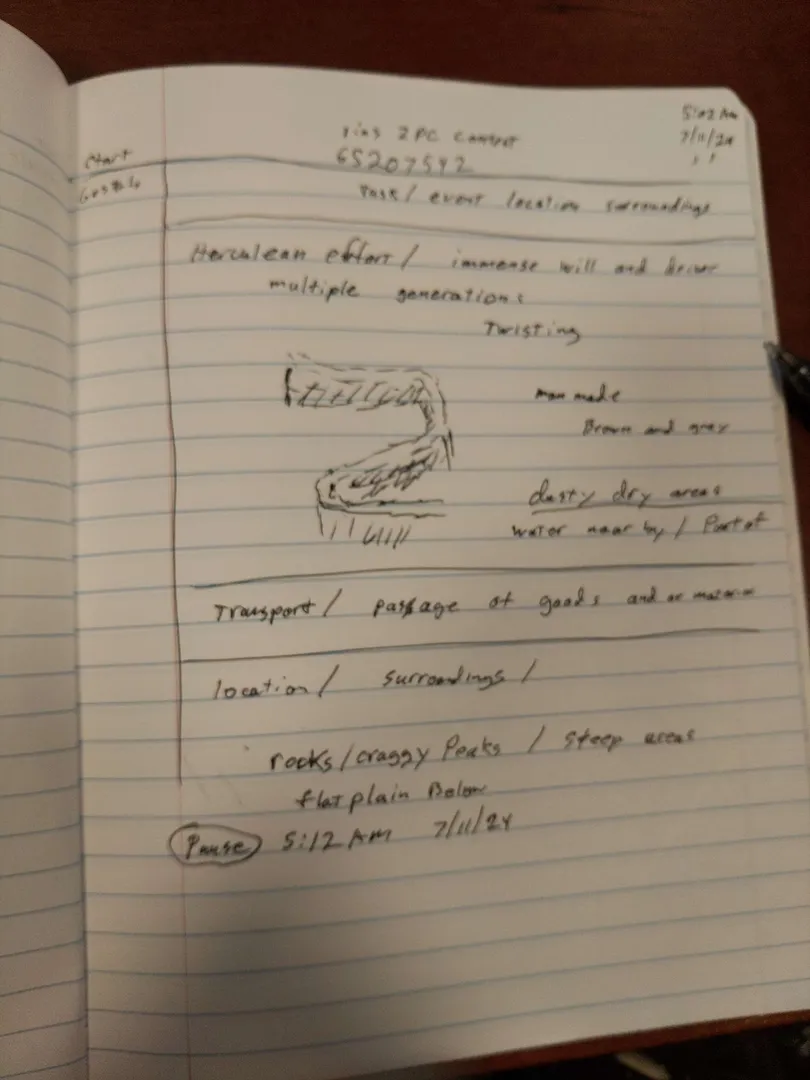 5:02 AM
7/11/24
2 PC
65207592
Start
Task/ event location surroundings
Herculean effort / immense will and
multiple generations
Twisting
man made
Brown and gray
dusty dry areas
water near by / Part of
Transport / passage of goods and or
location / surroundings /
rocks/craggy Peaks / steep areas
flat plain Below
Pause 5:12 AM 7/11/24